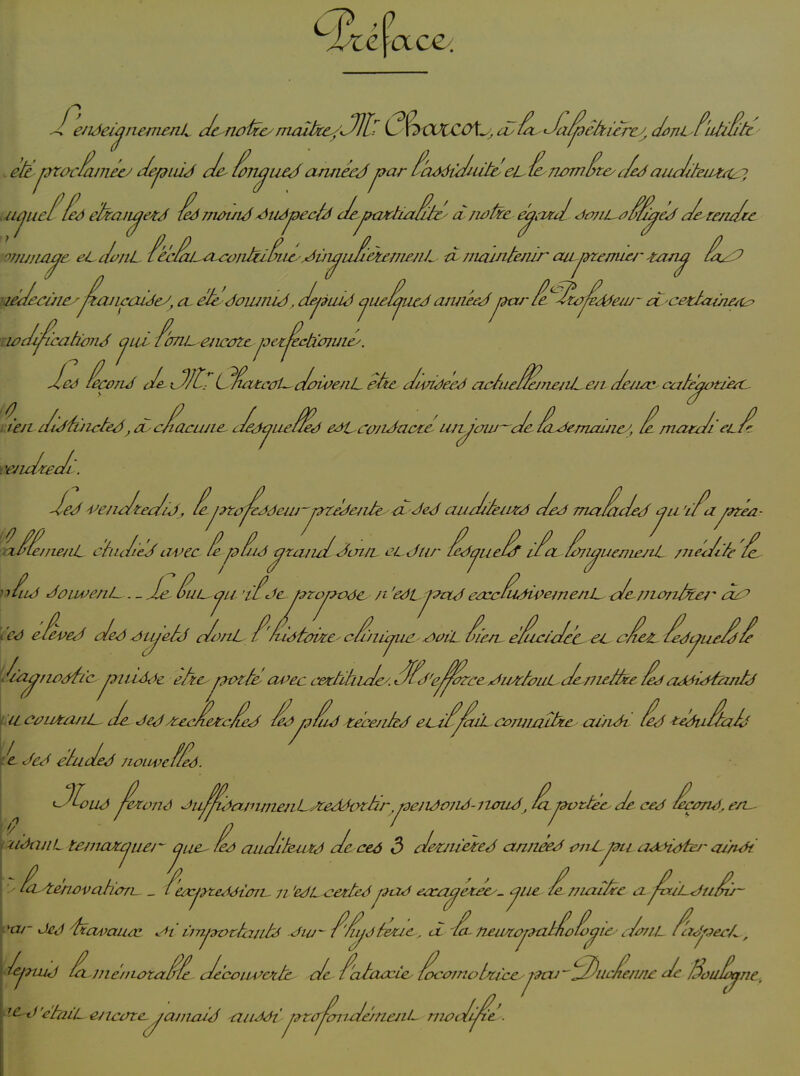 Préface.
L'enseignement de notre maître, Mr Charcot, à la Salpêtrière, dont l'utilité
été proclamée depuis de longues années par l'assiduité et le nombre des auditeurs,
auquel les étrangers les moins suspects de partialité à notre égard sont obligés de rendre
hommage et dont l'éclat a contribué singulièrement à maintenir au premier rang la
médecine française, a été soumis, depuis quelques années par le Professeur à certaines
modifications qui l'ont encore perfectionné.
Les leçons de Mr Charcot doivent être divisées actuellement en deux catégories
bien distinctes, à chacune desquelles est consacré un jour de la semaine, le mardi et le
vendredi.
Les vendredis, le professeur présente à ses auditeurs des malades qu'il a préa-
lablement étudiés avec le plus grand soin et sur lesquels il a longuement médité le
plus souvent. _ Le but qu'il se propose n'est pas exclusivement de montrer à
ses élèves des sujets dont l'histoire clinique soit bien élucidée et chez lesquels le
diagnostic puisse être porté avec certitude. Il s'efforce surtout de mettre les assistants
au courant de ses recherches les plus récentes et il fait connaître ainsi les résultats
de ses études nouvelles.
Nous ferons suffisamment ressortir, pensons-nous, la portée de ces leçons, en
faisant remarquer que les auditeurs de ces 3 dernières années ont pu assister ainsi
à la rénovation _ l'expression n'est certes pas exagérée _ que le maître a fait subir
par ses travaux si importants sur l'hystérie, à la neuropathologie dont l'aspect,
depuis la mémorable découverte de l'ataxie locomotrice par Duchenne de Boulogne,
ne s'était encore jamais aussi profondément modifié.